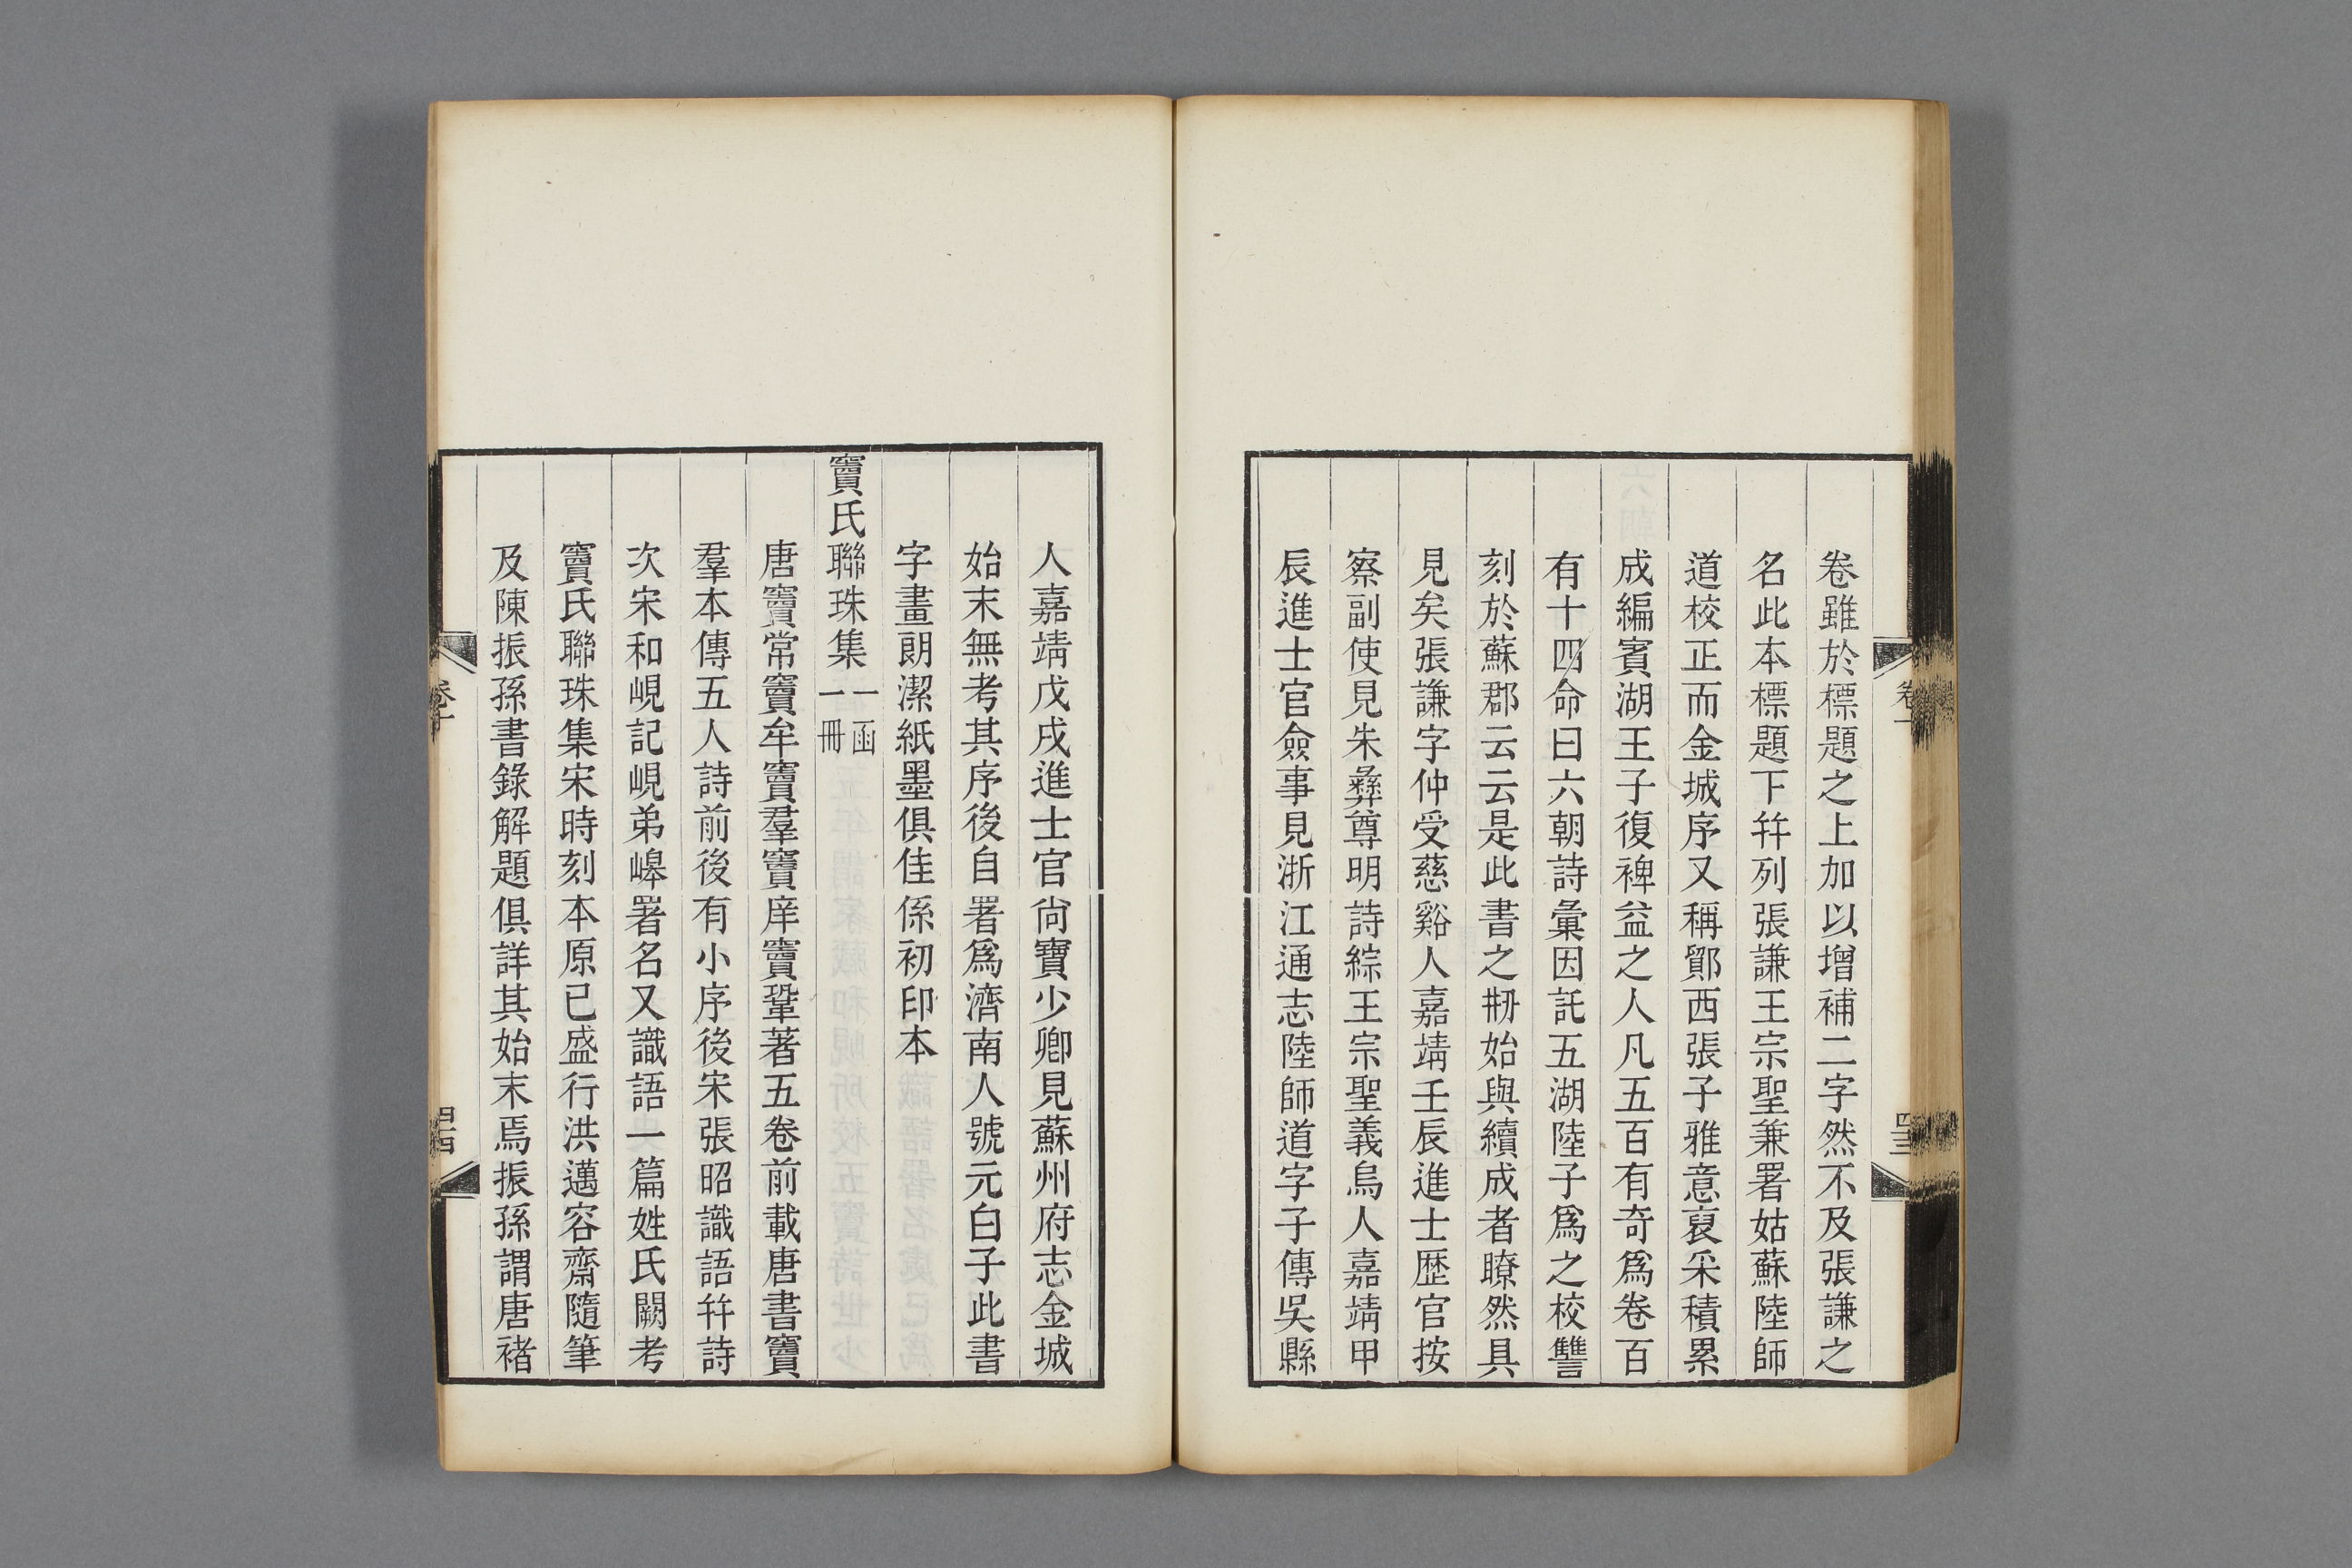 卷雖於標題之上加以增補二字然不及張謙之
名此本標題下幷列張謙王宗聖兼署姑蘇陸師
道校正而金城序又稱鄮西張子雅意裒采積累
成編賓湖王子復裨益之人凡五百有奇爲卷百
有十四命曰六朝詩彙因託五湖陸子爲之校讐
刻於蘇郡云云是此書之刱始與續成者瞭然具
見矣張謙字仲受慈谿人嘉靖壬辰進士歷官按
察副使見朱彝尊明詩綜王宗聖義烏人嘉靖甲
辰進士官僉事見浙江通志陸師道字子傳吳縣
人嘉靖戊戌進士官尙寶少卿見蘇州府志金城
始末無考其序後自署爲濟南人號元白子此書
字畫朗潔紙墨俱佳係初印本
竇氏聯珠集一函一冊
唐竇常竇牟竇羣竇庠竇鞏著五卷前載唐書竇
羣本傳五人詩前後有小序後宋張昭識語幷詩
次宋和峴記峴弟㠔署名又識語一篇姓氏闕考
竇氏聯珠集宋時刻本原已盛行洪邁容齋隨筆
及陳振孫書錄解題俱詳其始末焉振孫謂唐褚
卷十
四十四